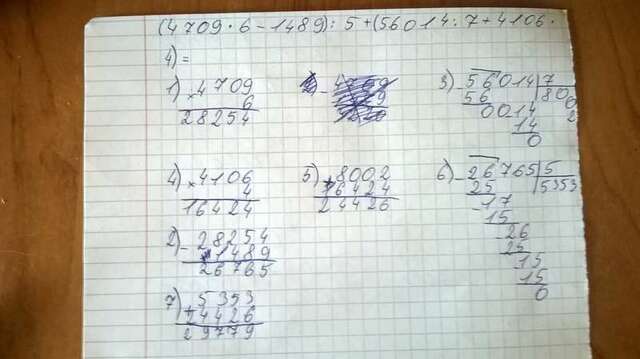 (4709·6-1489):5+(56014:7+4106·
4)=
1) ×4709
6
28254
3) -56014|7
56 8002
0014
14
0
4) ×4106
4
16424
5) +8002
16424
24426
6) -26765|5
25 5353
-17
15
-26
25
15
15
0
2) -28254
1489
26765
7) +5353
24426
29779